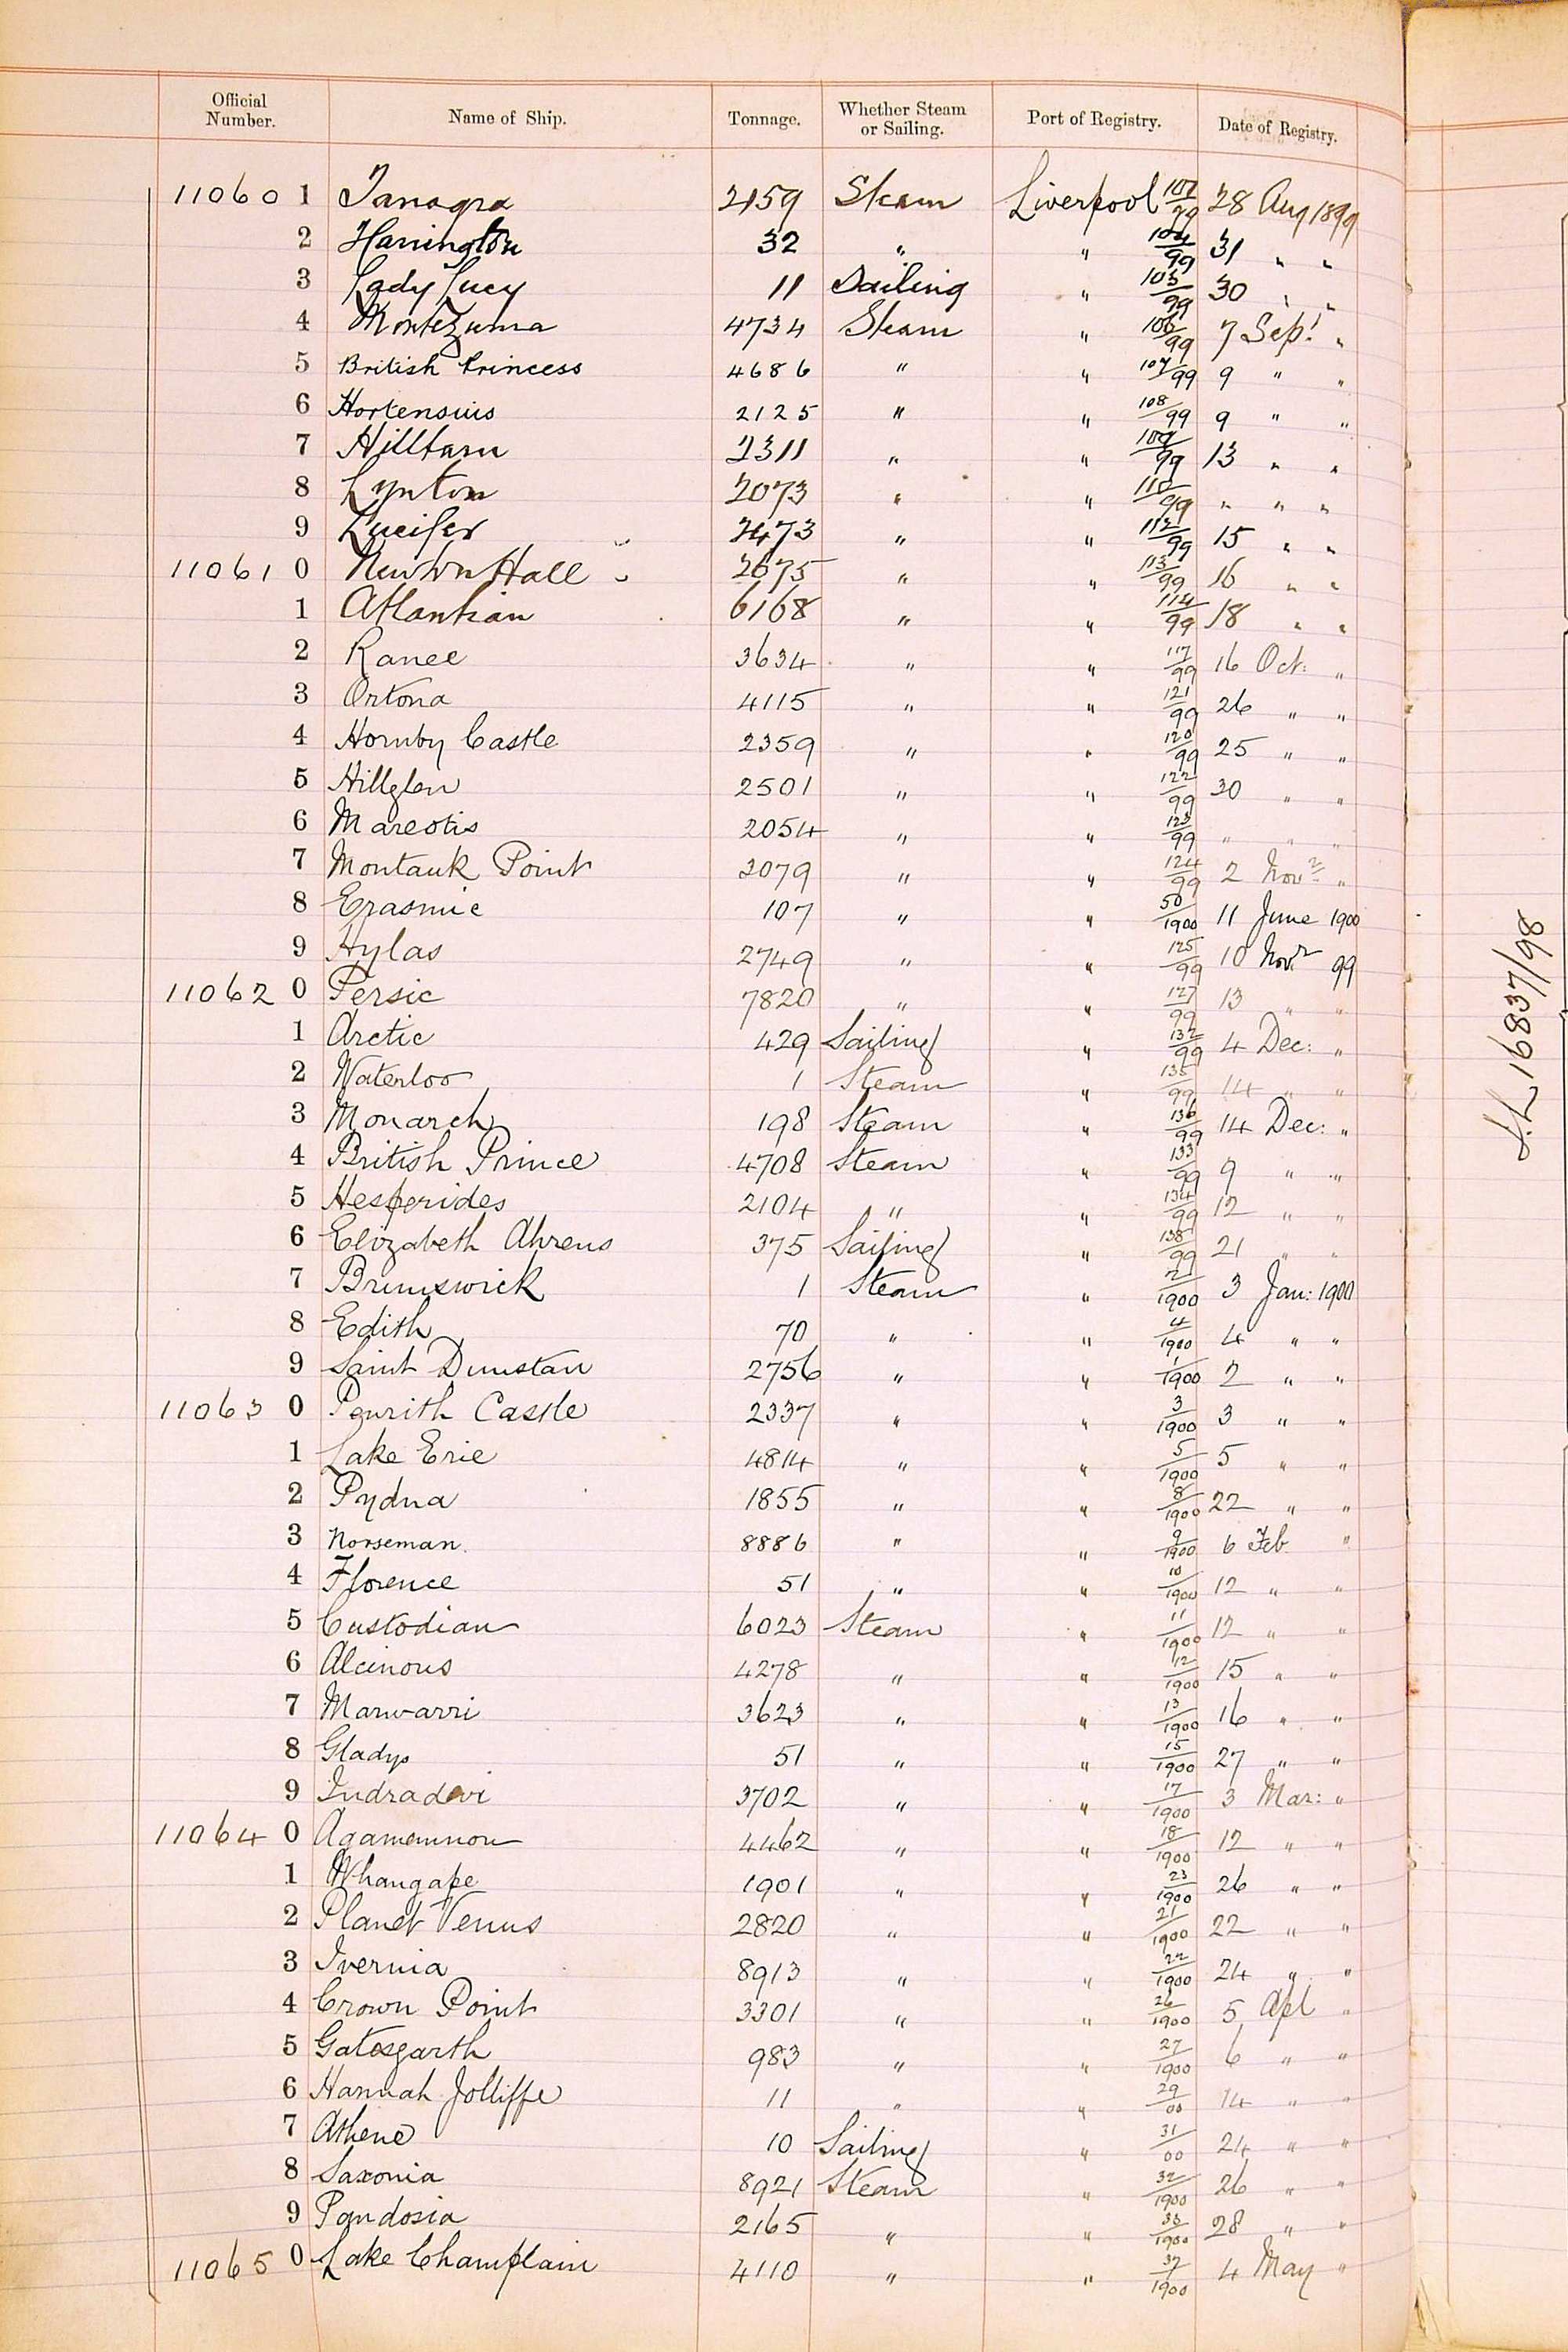 Official Number. Name of Ship. Tonnage. Whether Steam or Sailing. Port of Registry. Date of Registry.
11060 1 Tanagra 2159 Steam Liverpool 28 Aug 1899
2 Harrington 32 " " 104/99 31 " "
3 Lady Lucy 11 Sailing " 105/99 30 " "
4 Montezuma 4734 Steam " 106/99 7 Sept "
5 British Princess 4686 " " 107/99 9 " "
6 Hortensius 2125 " " 108/99 9 " "
7 Hilltarn 2311 " " 109/99 13 " "
8 Lynton 2073 " " 110/99 " " "
9 Lucifer 2473 " " 112/99 15 " "
11061 0 Newton Hall 2675 " " 113/99 16 " "
1 Atlantian 6168 " " 114/99 18 " "
2 Ranee 3634 " " 117/99 16 Oct: "
3 Ortona 4115 " " 121/99 26 " "
4 Hornby Castle 2359 " " 120/99 25 " "
5 Hillglen 2501 " " 122/99 30 " "
6 Mareotis 2054 " " 123/99 " " "
7 Montauk Point 2079 " " 124/99 2 Novr "
8 Erasmic 107 " " 50/1900 11 June 1900
9 Hylas 2749 " " 125/99 10 Novr 99
11062 0 Persic 7820 " " 127/99 13 " "
1 Arctic 429 Sailing " 132/99 4 Dec: "
2 Waterloo 1 Steam " 135/99 14 " "
3 Monarch 198 Steam " 136/99 14 Dec: "
4 British Prince 4708 Steam " 133/99 9 " "
5 Hesperides 2104 " " 134/99 12 " "
6 Elizabeth Ahrens 375 Sailing " 138/99 21 " "
7 Brunswick 1 Steam " 2/1900 3 Jan: 1900
8 Edith 70 " " 4/1900 4 " "
9 Saint Dunstan 2756 " " 1/1900 2 " "
11063 0 Penrith Castle 2337 " " 3/1900 3 " "
1 Lake Erie 4814 " " 5/1900 5 " "
2 Pydna 1855 " " 8/1900 22 " "
3 Norseman 8886 " " 9/1900 6 Feb "
4 Florence 51 " " 10/1900 12 " "
5 Custodian 6023 Steam " 11/1900 12 " "
6 Alcinous 4278 " " 12/1900 15 " "
7 Marwarri 3623 " " 13/1900 16 " "
8 Gladys 51 " " 15/1900 27 " "
9 Indradevi 3702 " " 17/1900 3 Mar: "
11064 0 Agamemnon 4462 " " 18/1900 12 " "
1 Whangape 1901 " " 23/1900 26 " "
2 Planet Venus 2820 " " 21/1900 22 " "
3 Ivernia 8913 " " 22/1900 24 " "
4 Crown Point 3301 " " 26/1900 5 Apl "
5 Gatesgarth 983 " " 27/1900 6 " "
6 Hannah Jolliffe 11 " " 29/00 14 " "
7 Athene 10 Sailing " 31/00 24 " "
8 Saxonia 8921 Steam " 32/1900 26 " "
9 Pandosia 2165 " " 33/1900 28 " "
11065 0 Lake Champlain 4110 " " 37/1900 4 May "
16837/98